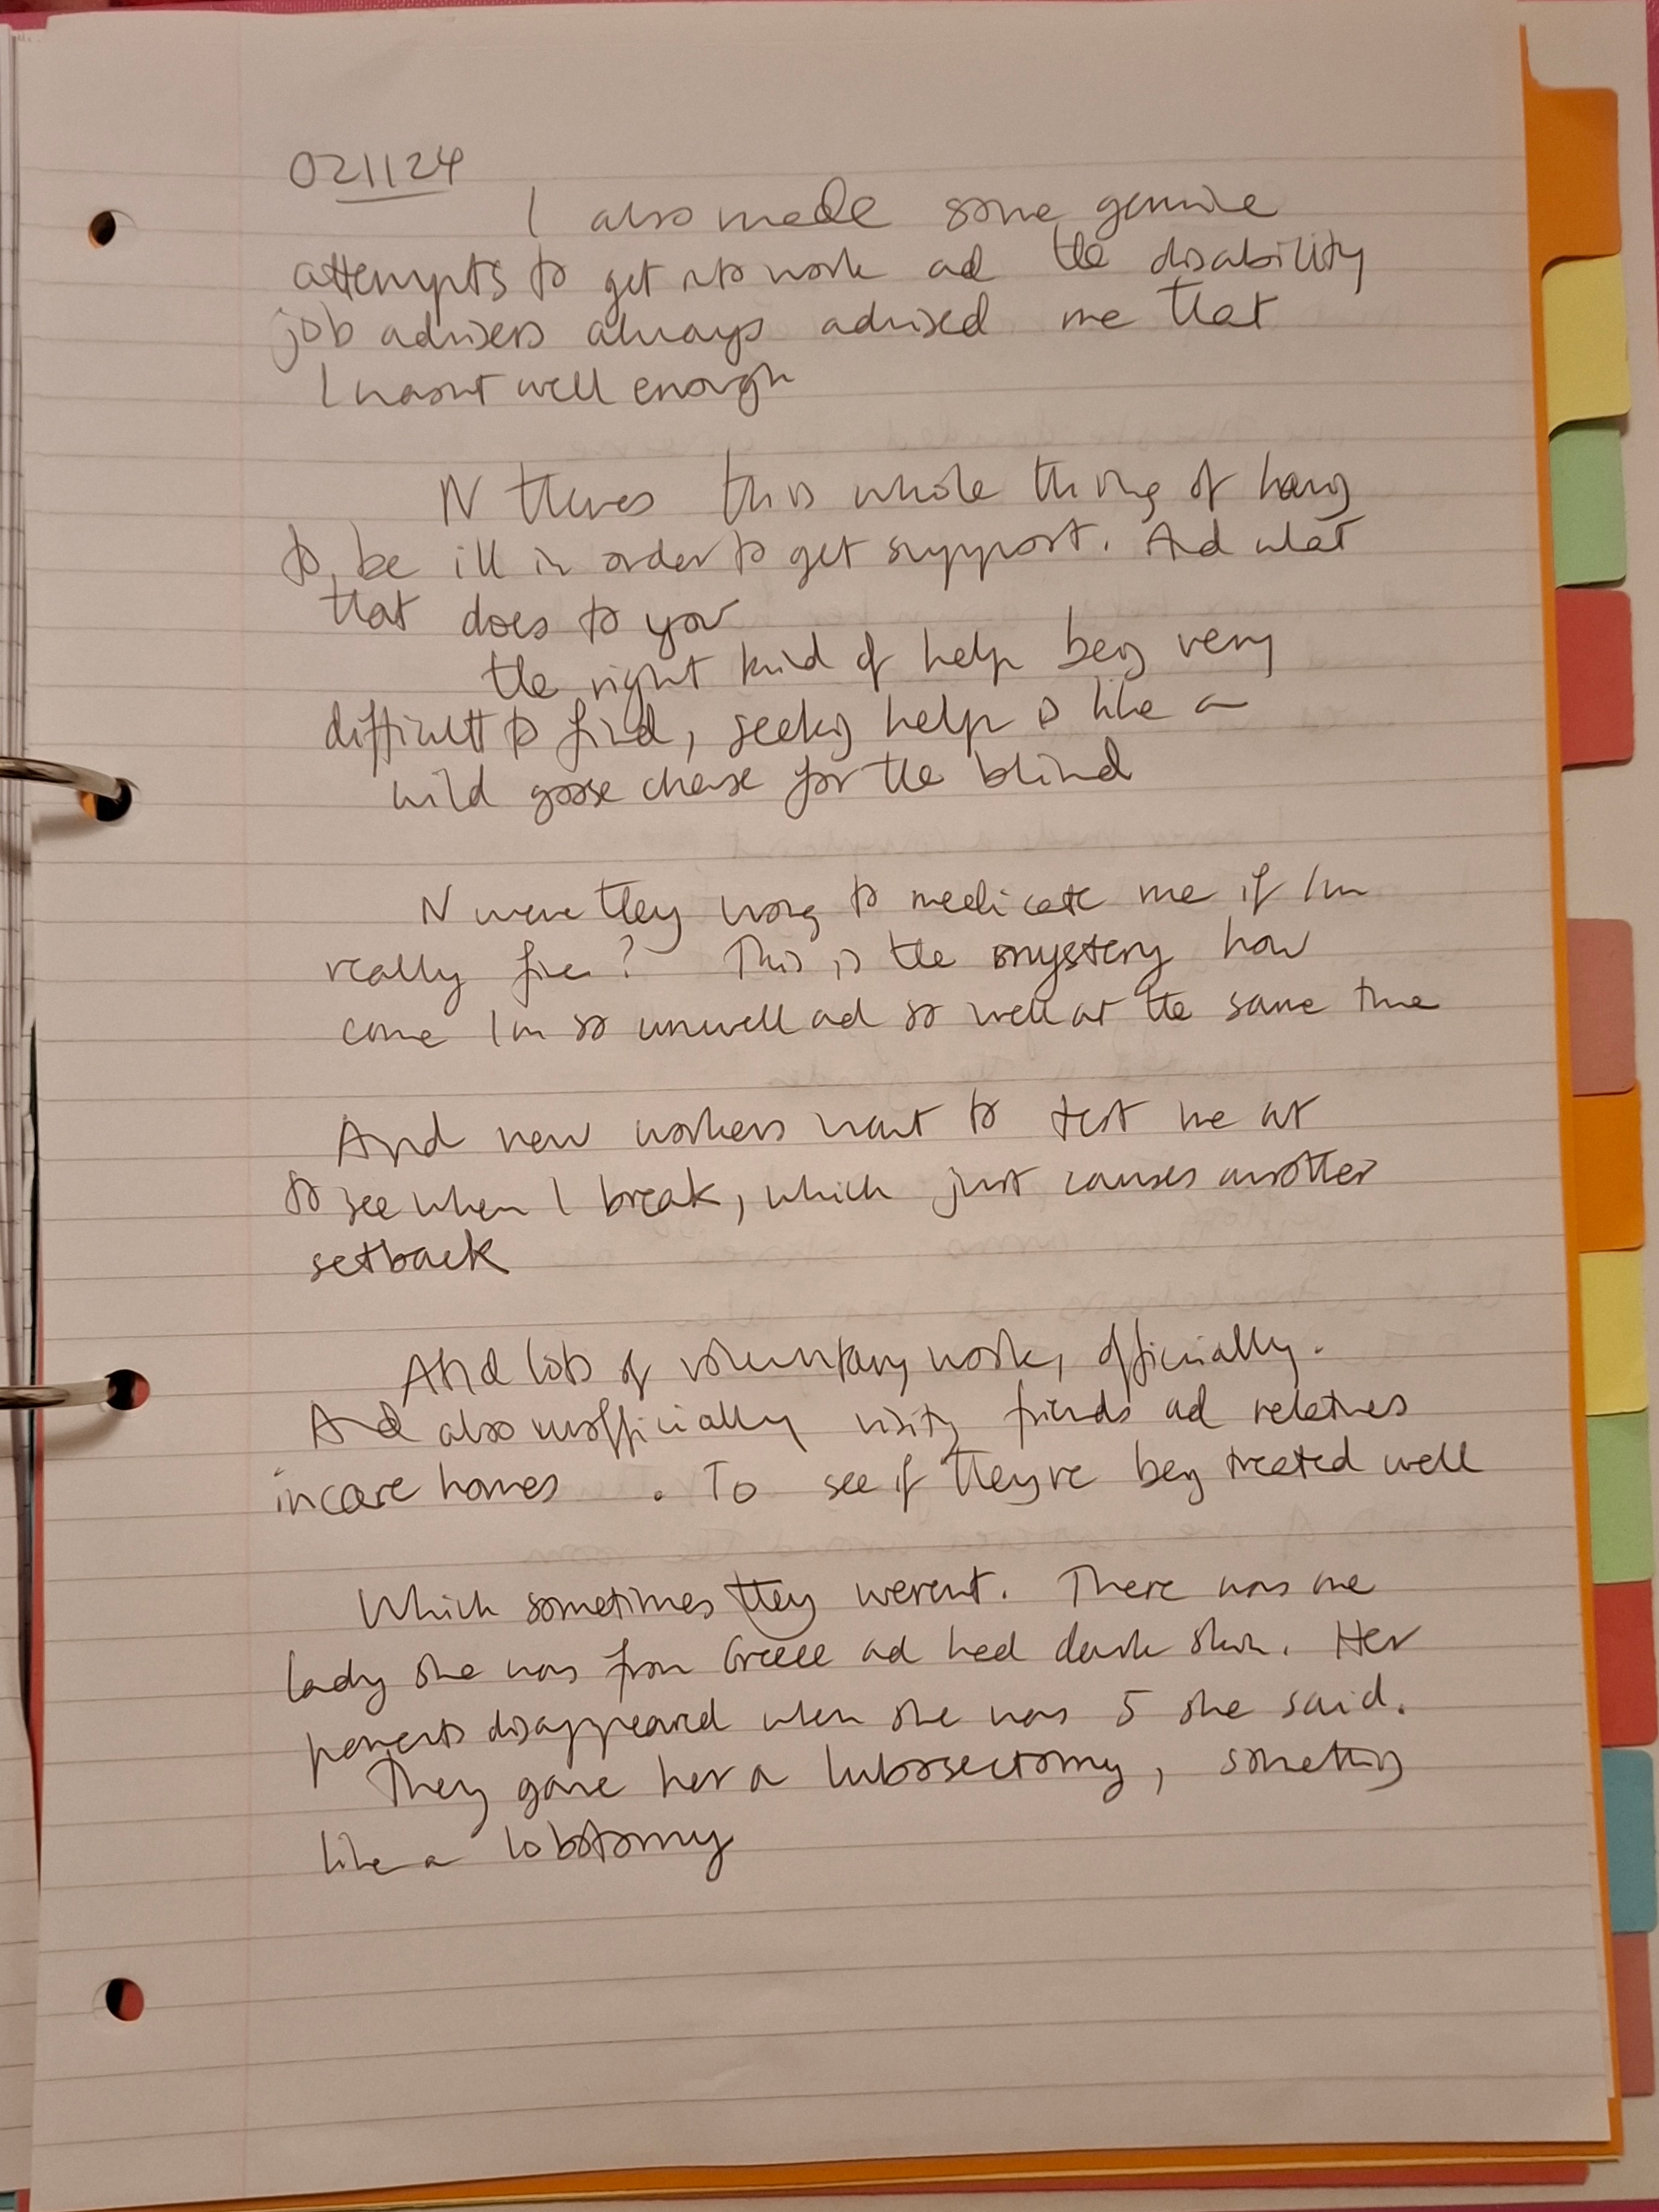 021124
I also made some genuine
attempts to get into work ad the disability
job advisers always advised me that
I wasnt well enough
N theres this whole thing of having
to be ill in order to get support. And what
that does to you
the right kind of help being very
difficult to find, seeking help is like a
wild goose chase for the blind
N were they wrong to medicate me if Im
really fine? This is the mystery how
come Im so unwell ad so well at the same time
And new workers want to test me at
to see when I break, which just causes another
setback
And lots of voluntary work, officially.
And also unofficially visiting friends ad relatives
in care homes . To see if theyre being treated well
Which sometimes they werent. There was one
lady she was from Greece ad had dark skin. Her
parents disappeared when she was 5 she said.
They gave her a lubosectomy, something
like a lobotomy